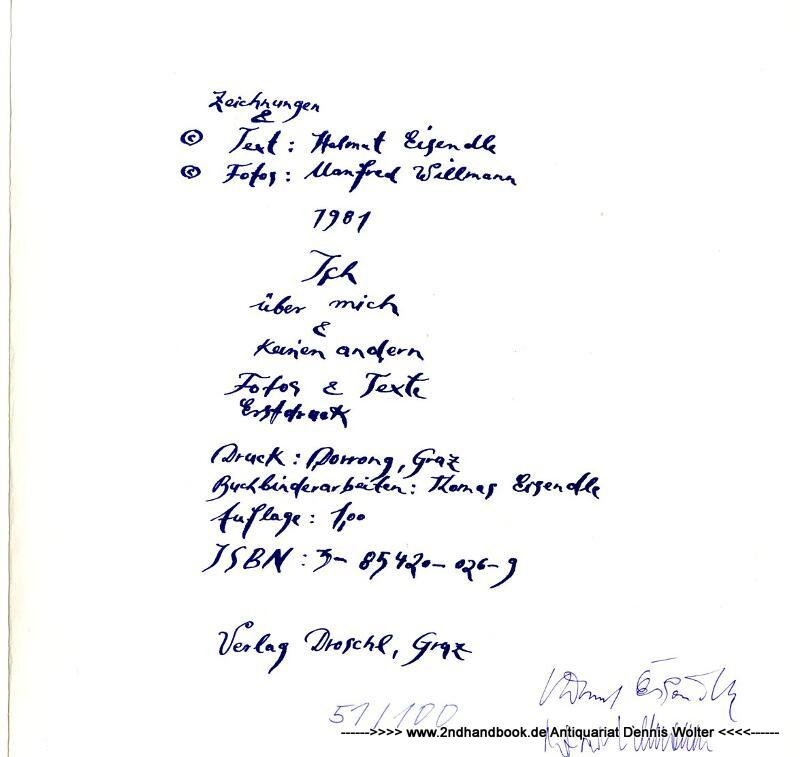 Zeichnungen
&
© Text: Helmut Eisendle
© Fotos: Manfred Willmann
1981
Ich
über mich
&
keinen andern
Fotos & Texte
Erstdruck
Druck: Dorrong, Graz
Buchbinderarbeiten: Thomas Eisendle
Auflage: 100
ISBN: 3-85420-026-9
Verlag Droschl, Graz
Helmut Eisendle
51/100
------>>>> www.2ndhandbook.de Antiquariat Dennis Wolter <<<<------
Willmann